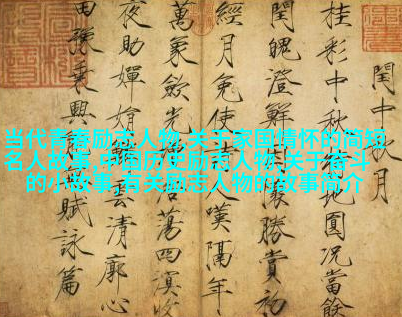 当代青春励志人物,关于家国情怀的简短
名人故事,中国历史励志人物,关于奋斗
的小故事,有关励志人物的故事简介
閏中秋月
桂彩中秋地圓况當餘
閏魄澄鮮勝賞初
經月免使人嘆隔年
萬象歛光蕩四溟收
夜助嬋娟雲清廓心
田豫乘興賦詠篇